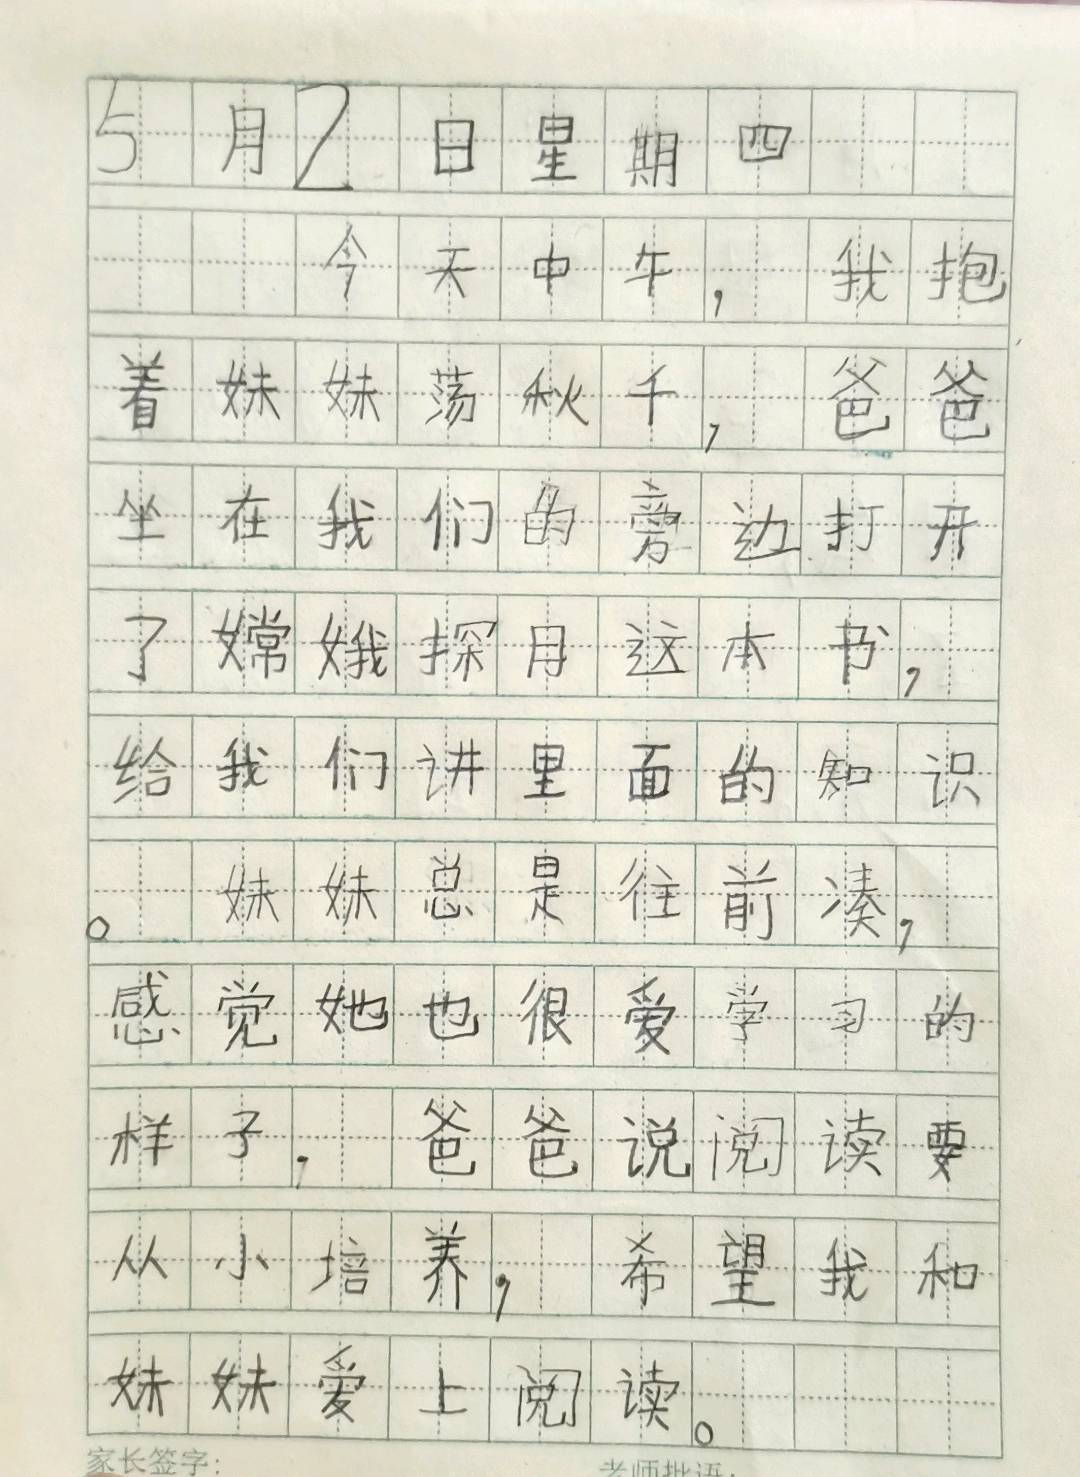 5月2日星期四
今天中午，我抱
着妹妹荡秋千，爸爸
坐在我们的旁边打开
了嫦娥探月这本书，
给我们讲里面的知识
。妹妹总是往前凑，
感觉她也很爱学习的
样子，爸爸说阅读要
从小培养，希望我和
妹妹爱上阅读。
家长签字：
老师批语：